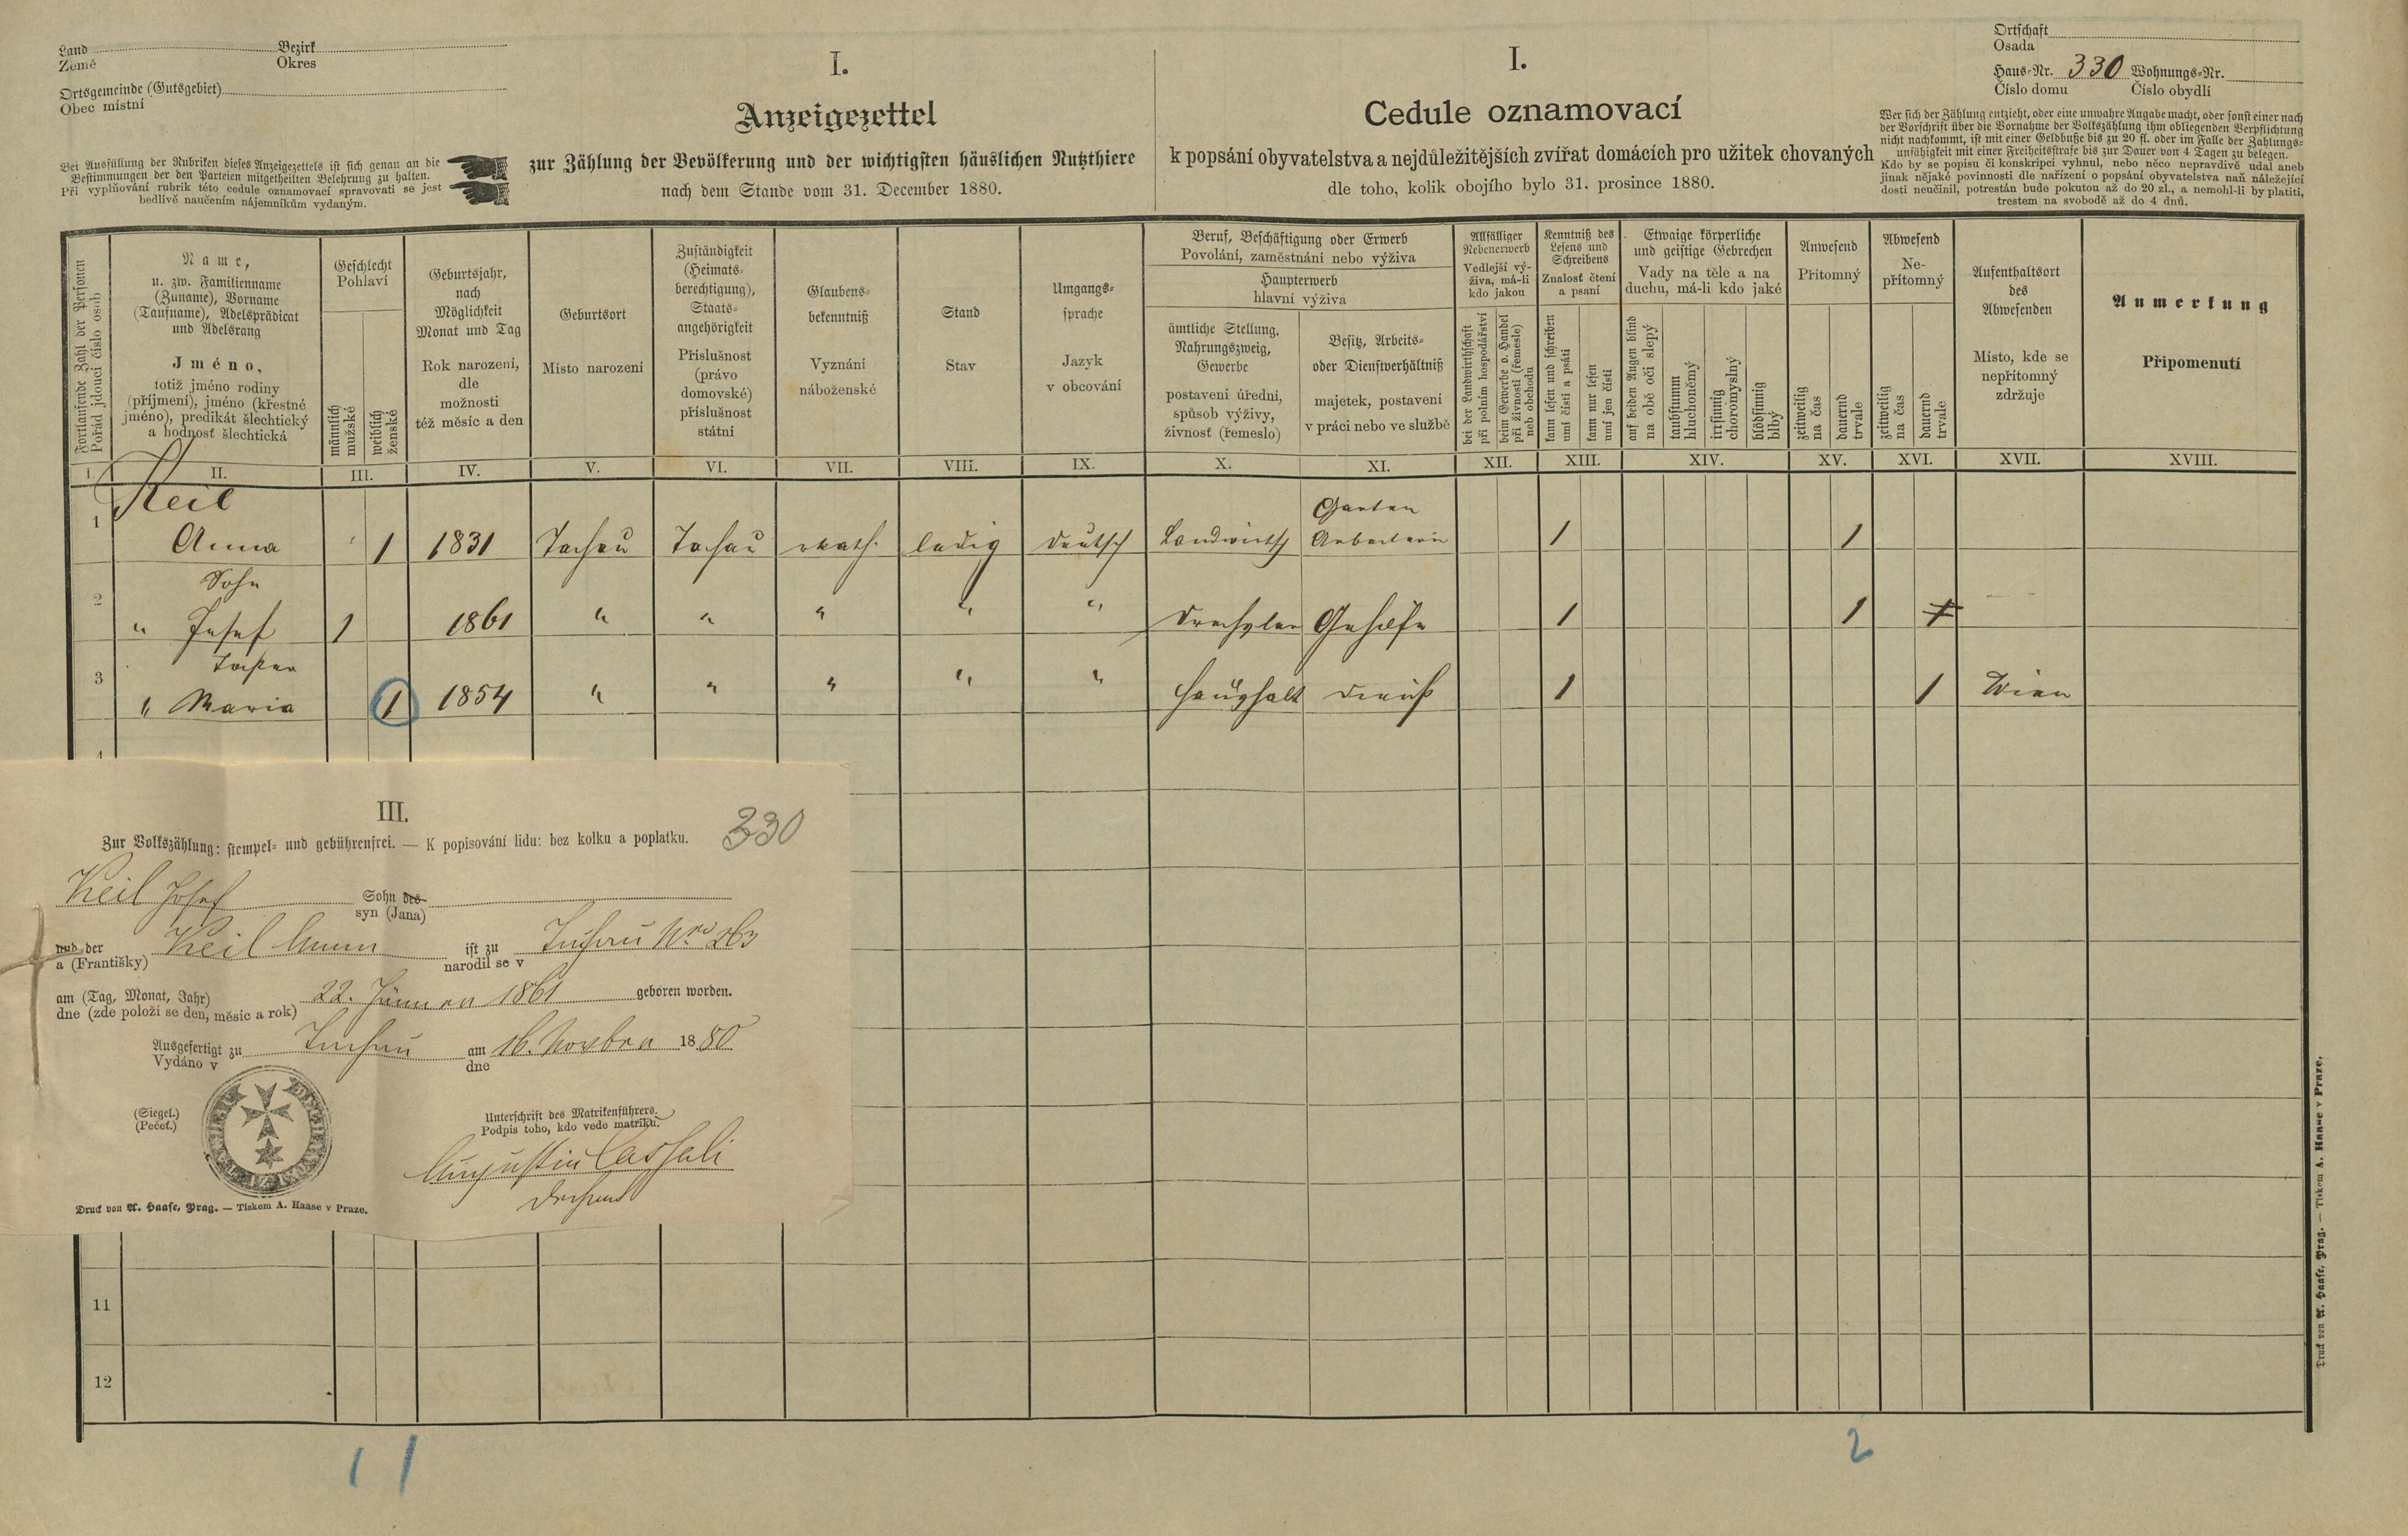 Land Bezirk
Země Okres
Ortsgemeinde (Gutsgebiet)
Obec místní
Bei Ausfüllung der Rubriken dieses Anzeigezettels ist sich genau an die
Bestimmungen der den Parteien mitgetheilten Belehrung zu halten.
Při vyplňování rubrik této cedule oznamovací spravovati se jest
bedlivě naučením nájemníkům vydaným.
I.
Anzeigezettel
zur Zählung der Bevölkerung und der wichtigsten häuslichen Nutzthiere
nach dem Stande vom 31. December 1880.
I.
Cedule oznamovací
k popsání obyvatelstva a nejdůležitějších zvířat domácích pro užitek chovaných
dle toho, kolik obojího bylo 31. prosince 1880.
Ortschaft
Osada
Haus-Nr. 330 Wohnungs-Nr.
Číslo domu Číslo obydlí
Wer sich der Zählung entzieht, oder eine unwahre Angabe macht, oder sonst einer nach
der Vorschrift über die Vornahme der Volkszählung ihm obliegenden Verpflichtung
nicht nachkommt, ist mit einer Geldbuße bis zu 20 fl. oder im Falle der Zahlungs-
unfähigkeit mit einer Freiheitsstrafe bis zur Dauer von 4 Tagen zu belegen.
Kdo by se popisu či konskripci vyhnul, nebo něco nepravdivě udal aneb
jinak nějaké povinnosti dle nařízení o popsání obyvatelstva naň náležející
dosti neučinil, potrestán bude pokutou až do 20 zl., a nemohl-li by platiti,
trestem na svobodě až do 4 dnů.
Fortlaufende Zahl der Personen
Pořád jdoucí číslo osob
Name,
u. zw. Familienname
(Zuname), Vorname
(Taufname), Adelsprädicat
und Adelsrang
Jméno,
totiž jméno rodiny
(příjmení), jméno (křestné
jméno), predikát šlechtický
a hodnosť šlechtická
Geschlecht
Pohlaví
männlich
mužské
weiblich
ženské
Geburtsjahr,
nach
Möglichkeit
Monat und Tag
Rok narození,
dle
možnosti
též měsíc a den
Geburtsort
Místo narození
Zuständigkeit
(Heimats-
berechtigung),
Staats-
angehörigkeit
Příslušnost
(právo
domovské)
příslušnost
státní
Glaubens-
bekenntniß
Vyznání
náboženské
Stand
Stav
Umgangs-
sprache
Jazyk
v obcování
Beruf, Beschäftigung oder Erwerb
Povolání, zaměstnání nebo výživa
Haupterwerb
hlavní výživa
ämtliche Stellung,
Nahrungszweig,
Gewerbe
postavení úřední,
spůsob výživy,
živnosť (řemeslo)
Besitz, Arbeits-
oder Dienstverhältniß
majetek, postavení
v práci nebo ve službě
Allfälliger
Nebenerwerb
Vedlejší vý-
živa, má-li
kdo jakou
bei der Landwirthschaft
při polním hospodářství
beim Gewerbe o. Handel
při živnosti (řemesle)
neb obchodu
Kenntniß des
Lesens und
Schreibens
Znalosť čtení
a psaní
kann lesen und schreiben
umí čísti a psáti
kann nur lesen
umí jen čísti
Etwaige körperliche
und geistige Gebrechen
Vady na těle a na
duchu, má-li kdo jaké
auf beiden Augen blind
na obě oči slepý
taubstumm
hluchoněmý
irrsinnig
choromyslný
blödsinnig
blbý
Anwesend
Přítomný
zeitweilig
na čas
dauernd
trvale
Abwesend
Ne-
přítomný
zeitweilig
na čas
dauernd
trvale
Aufenthaltsort
des
Abwesenden
Místo, kde se
nepřítomný
zdržuje
Anmerkung
Připomenutí
I. II. III. IV. V. VI. VII. VIII. IX. X. XI. XII. XIII. XIV. XV. XVI. XVII. XVIII.
Keil Garten
1 Anna 1 1831 Tachau Tachau rkath. ledig deutsch Landwirtsch Arbeiterin 1 1
Sohn
2 " Josef 1 1861 " " " " " Drechsler Gehilfe 1 1 1
Tochter
3 " Maria 1 1854 " " " " " Haushalt Dienst 1 1 Wien
4
III.
330
Zur Volkszählung: stempel- und gebührenfrei. — K popisování lidu: bez kolku a poplatku.
Keil Josef Sohn des
syn (Jana)
und der Keil Anna ist zu Tachau Nro 263
a (Františky) narodil se v
am (Tag, Monat, Jahr) 22. Jänner 1861 geboren worden.
dne (zde položí se den, měsíc a rok)
Ausgefertigt zu Tachau am 16. Novbre 1880
Vydáno v dne
(Siegel.)
(Pečeť.)
Unterschrift des Matrikenführers.
Podpis toho, kdo vede matriku.
Augustin
Dechant
Druck von A. Haase, Prag. — Tiskem A. Haase v Praze.
11
12
1 1 2
Druck von A. Haase, Prag. — Tiskem A. Haase v Praze.